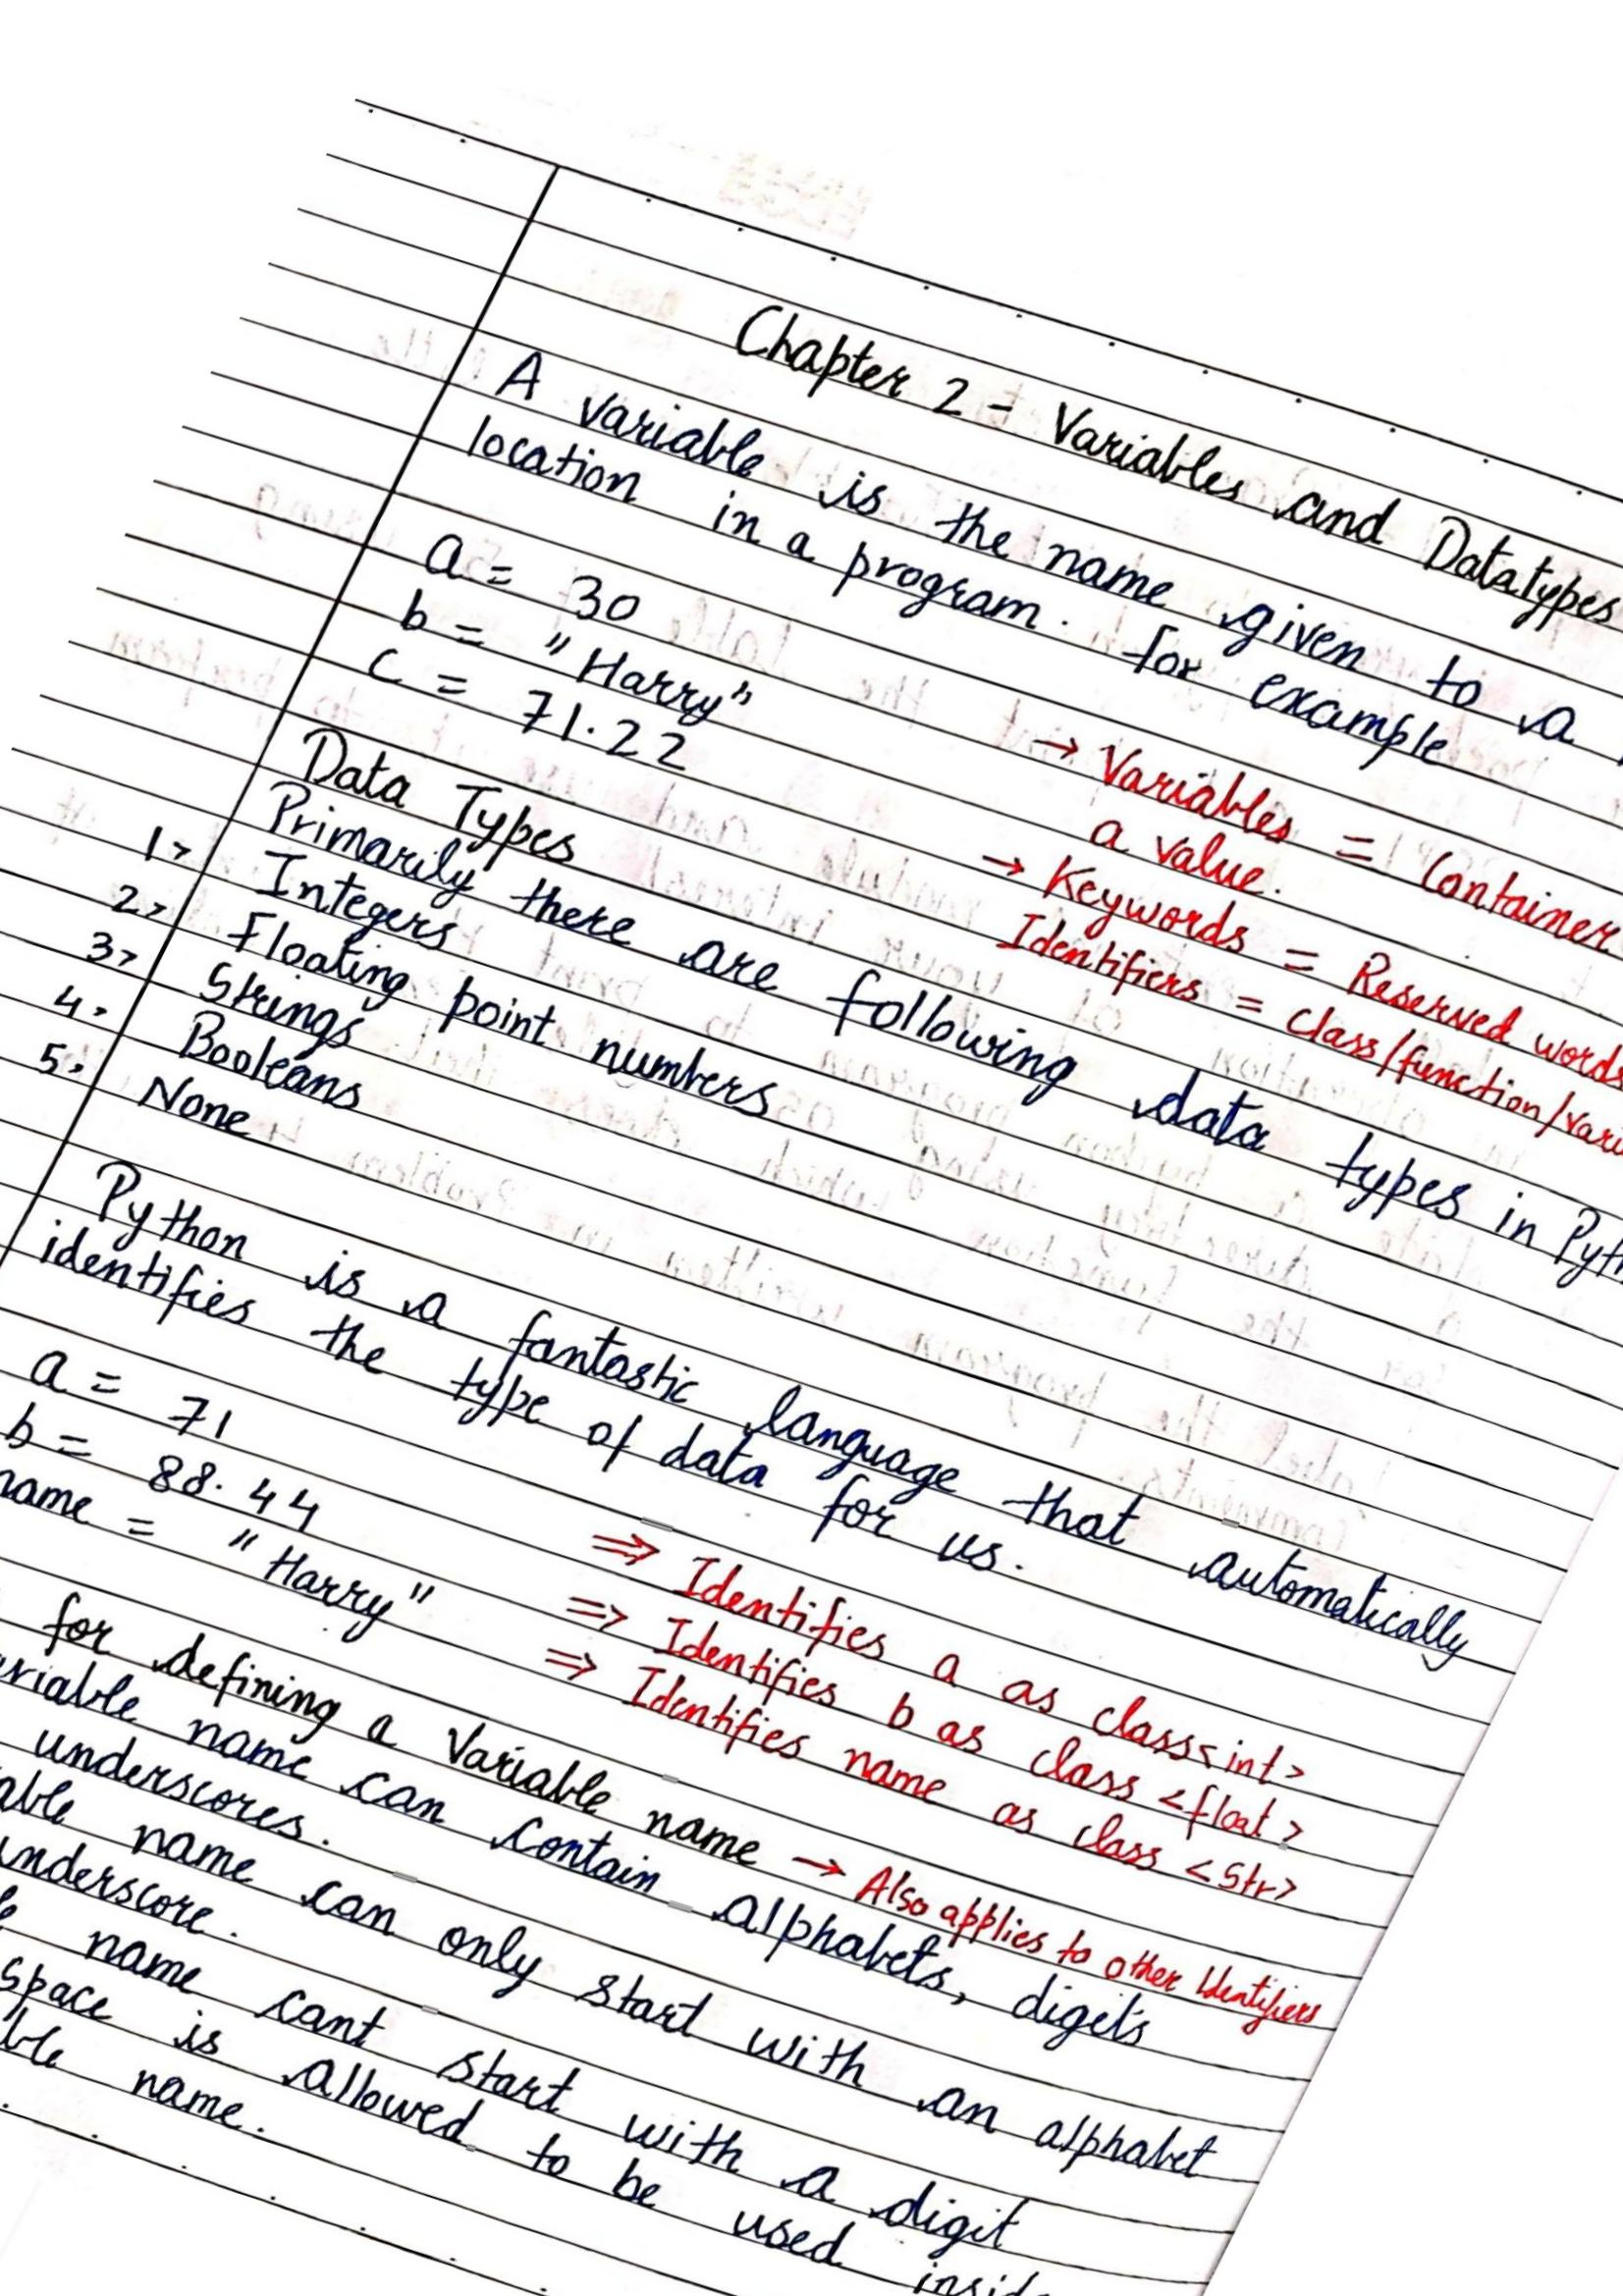 Chapter 2 - Variables and Datatypes
A variable is the name given to a
location in a program. for example
a = 30
b = "Harry"
c = 71.22
→ Variables = Container
a value.
→ Keywords = Reserved words
Identifiers = class/function/vari
Data Types
Primarily there are following data types in Pyth
1> Integers
2> Floating point numbers
3> Strings
4> Booleans
5> None
Python is a fantastic language that automatically
identifies the type of data for us.
a = 71 ⇒ Identifies a as class<int>
b = 88.44 ⇒ Identifies b as class <float>
name = "Harry" ⇒ Identifies name as class <str>
for defining a Variable name → Also applies to other Identifiers
riable name can contain alphabets, digits
underscores.
able name can only start with an alphabet
underscore.
name cant start with a digit
space is allowed to be used insid
ble name.